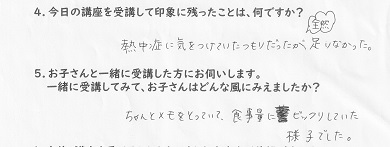 4. 今日の講座を受講して印象に残ったことは、何ですか?
全然
熱中症に気をつけていたつもりだったが、足りなかった。
5. お子さんと一緒に受講した方にお伺いします。
一緒に受講してみて、お子さんはどんな風にみえましたか?
ちゃんとメモをとっていて、食事量にビックリしていた
様子でした。